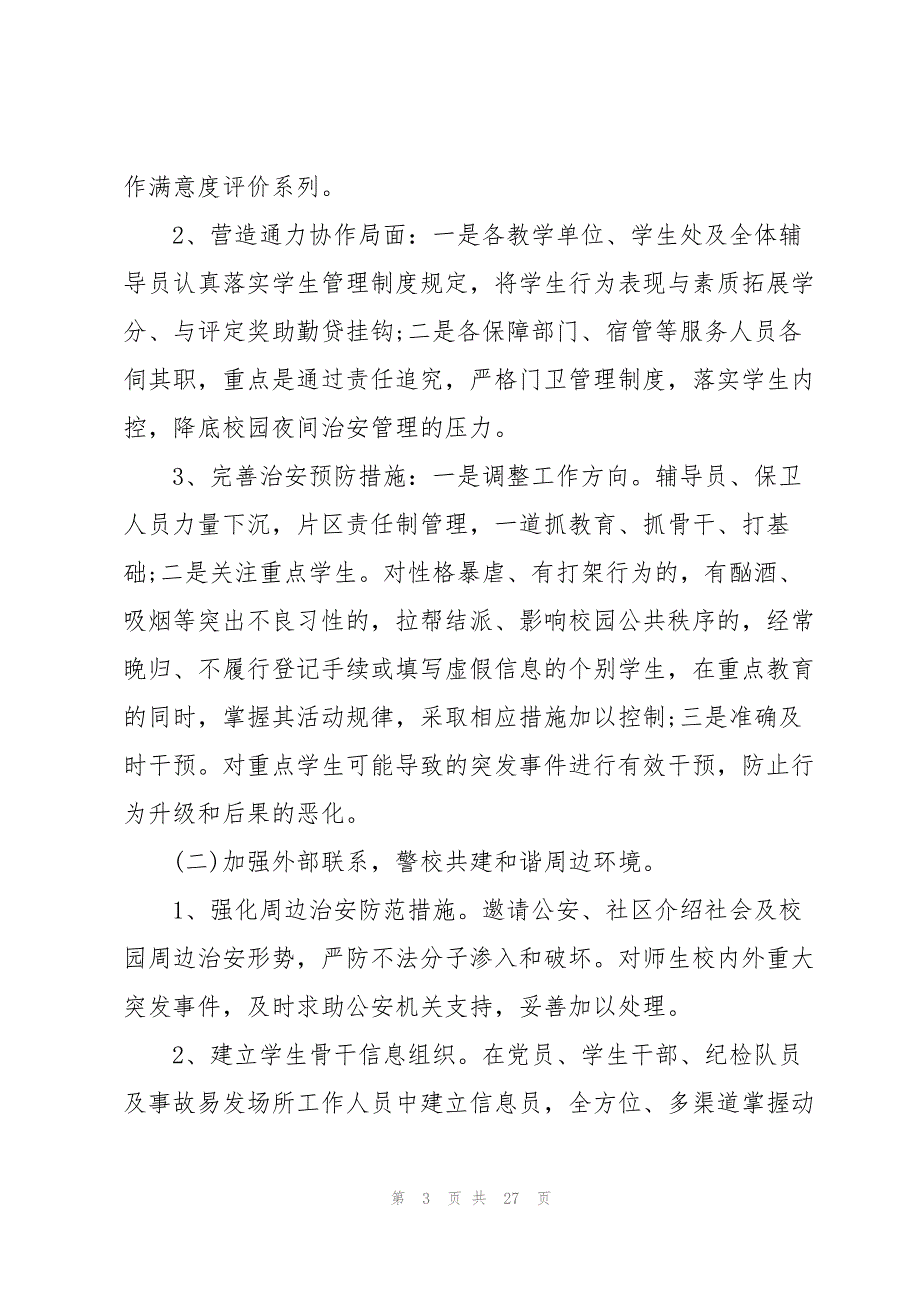 作满意度评价系列。
2、营造通力协作局面：一是各教学单位、学生处及全体辅
导员认真落实学生管理制度规定，将学生行为表现与素质拓展学
分、与评定奖助勤贷挂钩;二是各保障部门、宿管等服务人员各
伺其职，重点是通过责任追究，严格门卫管理制度，落实学生内
控，降底校园夜间治安管理的压力。
3、完善治安预防措施：一是调整工作方向。辅导员、保卫
人员力量下沉，片区责任制管理，一道抓教育、抓骨干、打基
础;二是关注重点学生。对性格暴虐、有打架行为的，有酗酒、
吸烟等突出不良习性的，拉帮结派、影响校园公共秩序的，经常
晚归、不履行登记手续或填写虚假信息的个别学生，在重点教育
的同时，掌握其活动规律，采取相应措施加以控制;三是准确及
时干预。对重点学生可能导致的突发事件进行有效干预，防止行
为升级和后果的恶化。
(二)加强外部联系，警校共建和谐周边环境。
1、强化周边治安防范措施。邀请公安、社区介绍社会及校
园周边治安形势，严防不法分子渗入和破坏。对师生校内外重大
突发事件，及时求助公安机关支持，妥善加以处理。
2、建立学生骨干信息组织。在党员、学生干部、纪检队员
及事故易发场所工作人员中建立信息员，全方位、多渠道掌握动
第 3 页 共 27 页